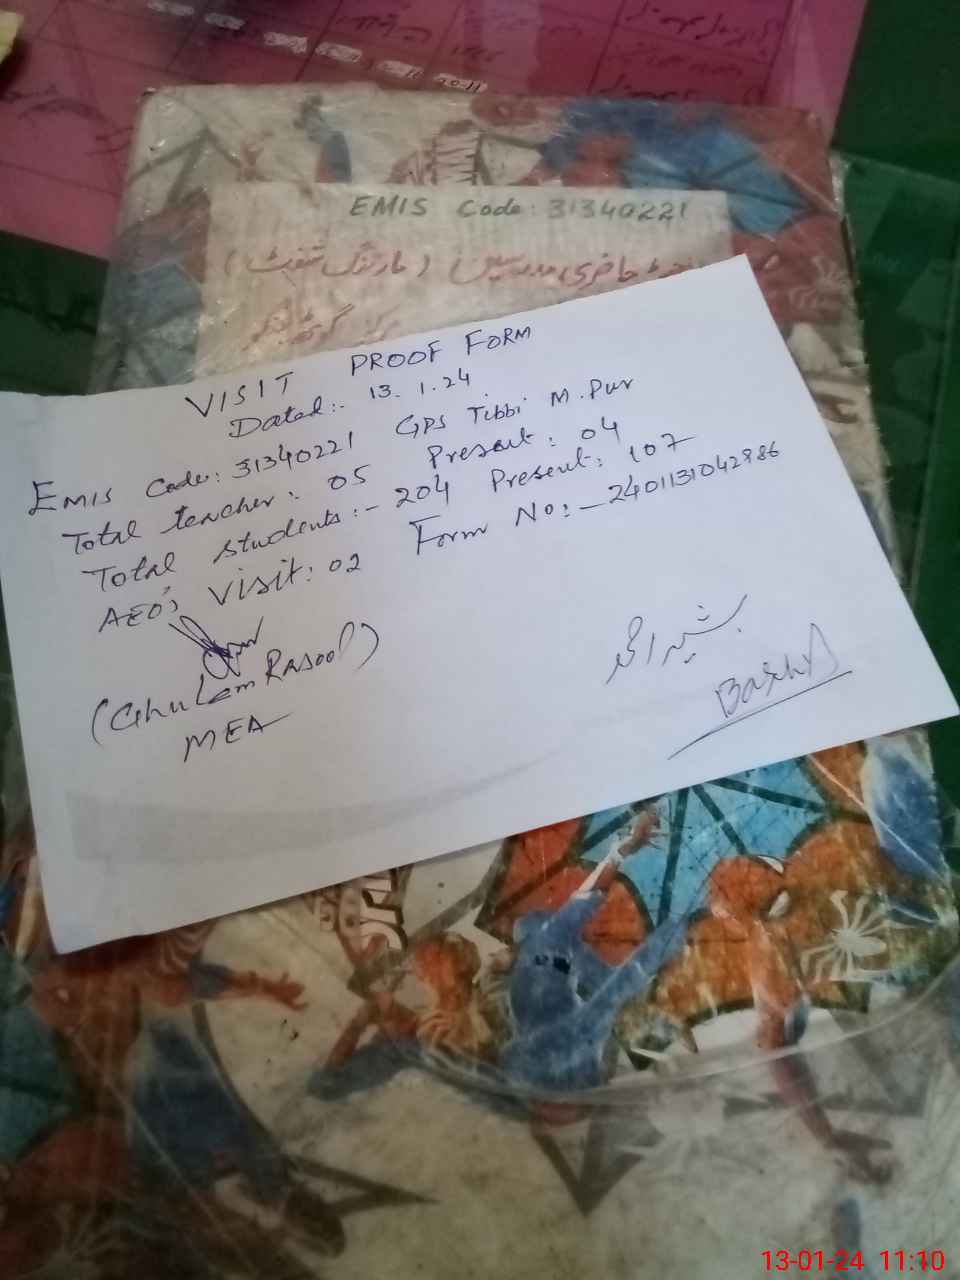 EMIS Code: 31340221
حاضری مدرسین (مارننگ شفٹ)
VISIT PROOF FORM
Dated:- 13.1.24
EMIS Code: 31340221 GPS Tibbi M.Pur
Total teacher: 05 Present: 04
Total students:- 204 Present: 107
AEO's Visit: 02 Form No:- 2401131042986
(Ghulam Rasool)
MEA
بشیر احمد
Bashir
13-01-24 11:10